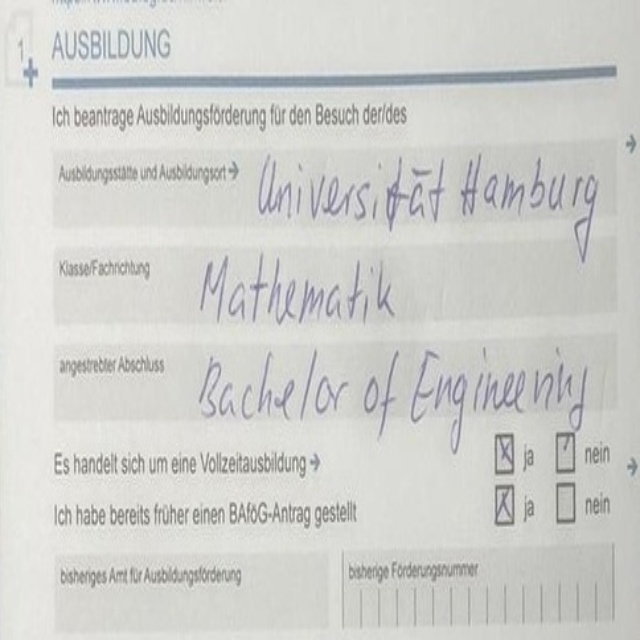 1
AUSBILDUNG
Ich beantrage Ausbildungsförderung für den Besuch der/des
Ausbildungsstätte und Ausbildungsort → Universität Hamburg
Klasse/Fachrichtung Mathematik
angestrebter Abschluss Bachelor of Engineering
Es handelt sich um eine Vollzeitausbildung → ja nein
Ich habe bereits früher einen BAföG-Antrag gestellt ja nein
bisheriges Amt für Ausbildungsförderung bisherige Förderungsnummer